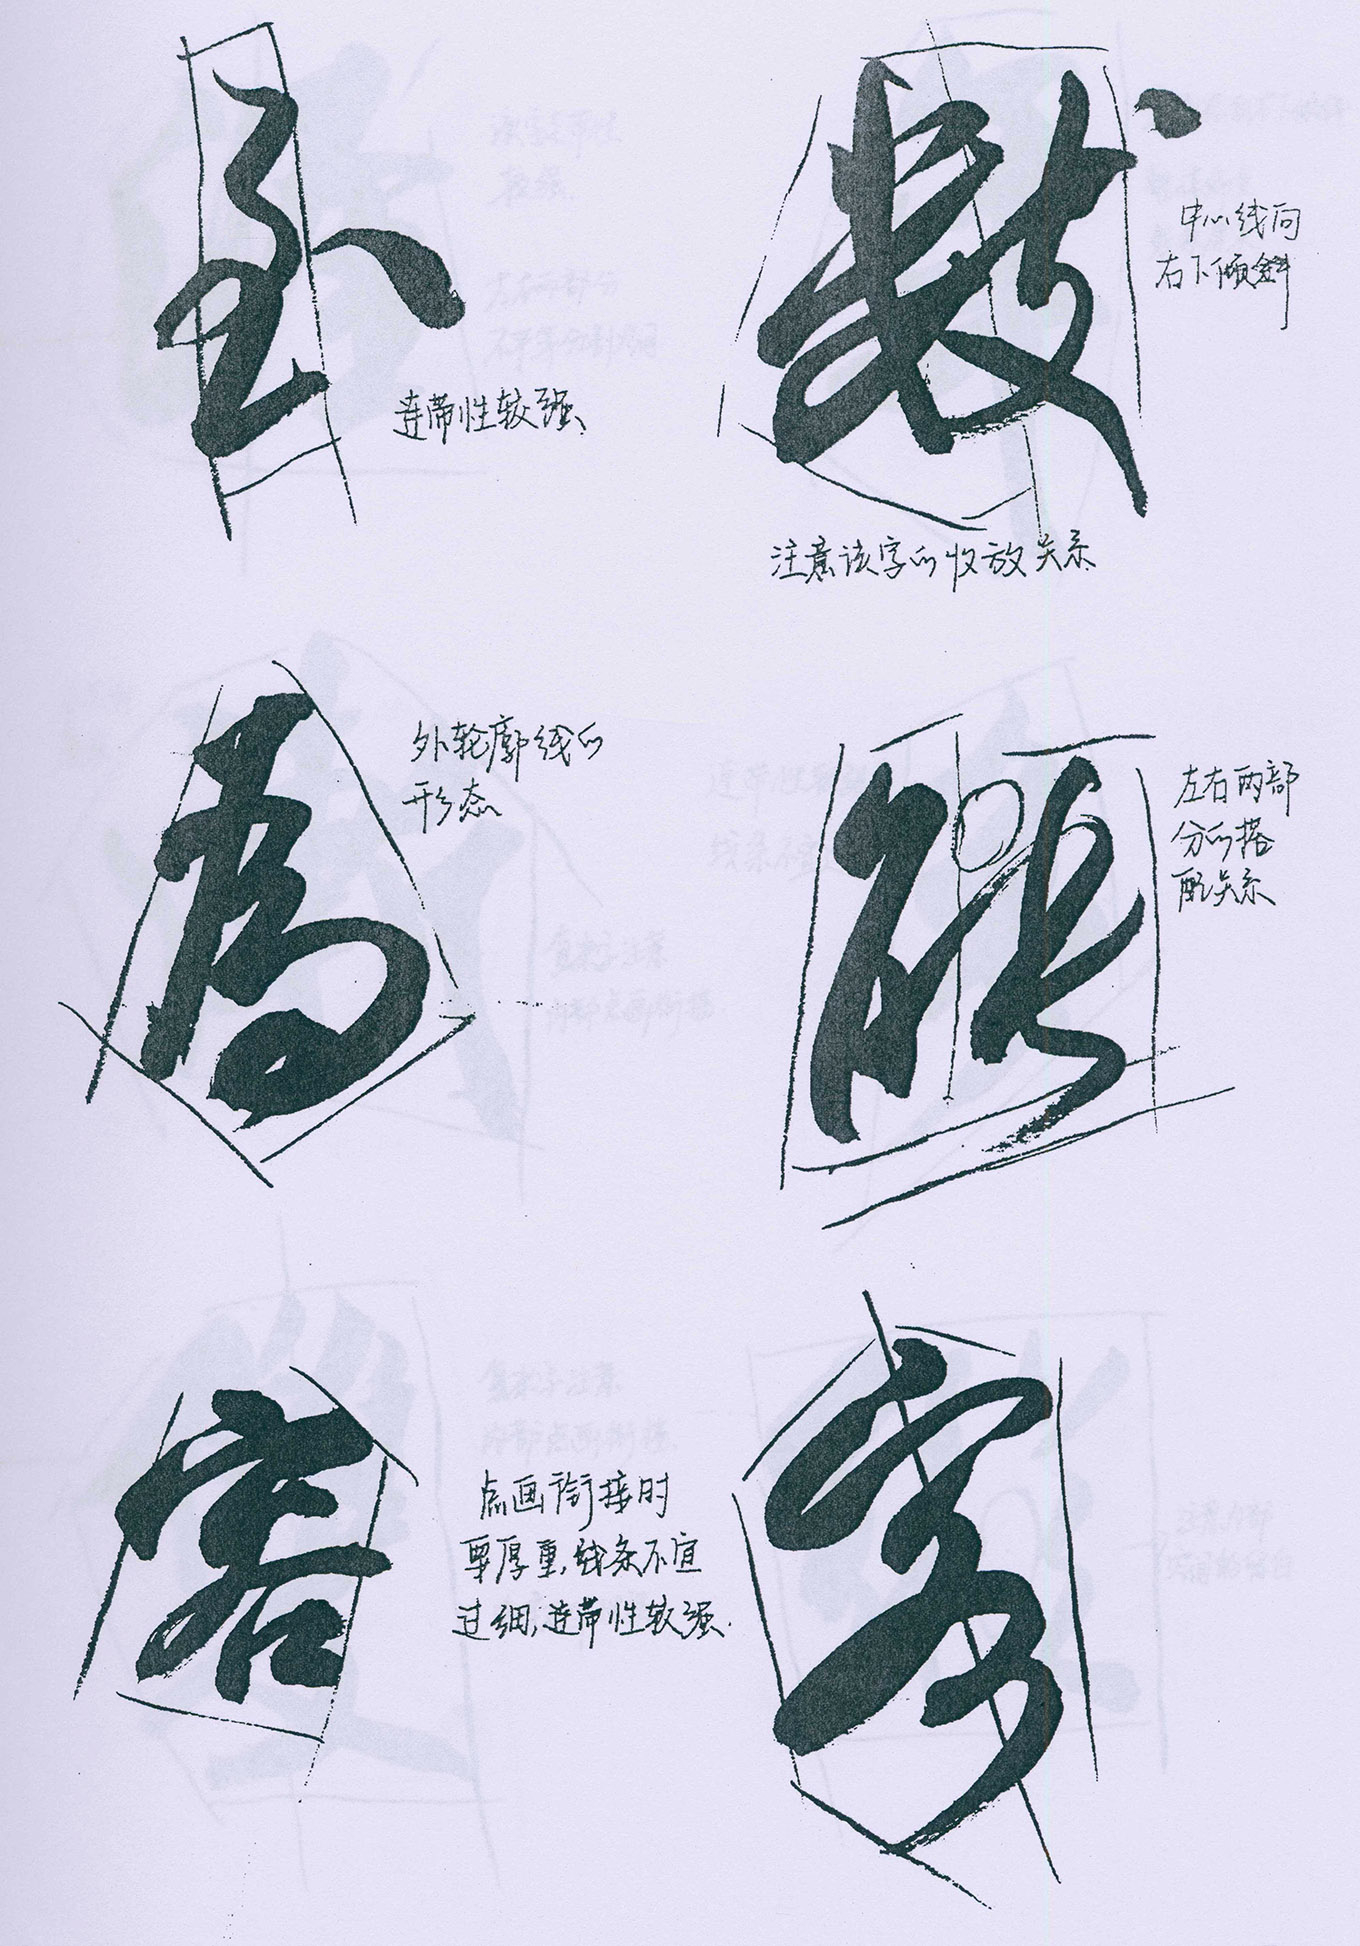 至
连带性较强
中心线向
右下倾斜
注意该字的收放关系
為
外轮廓线的
形态
能
左右两部
分的搭
配关系
客
点画衔接时
要厚重，线条不宜
过细，连带性较强.
客